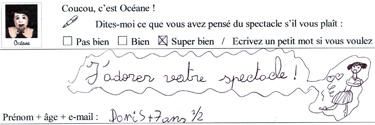 Coucou, c'est Océane !
Dites-moi ce que vous avez pensé du spectacle s'il vous plaît :
☐ Pas bien ☐ Bien ☒ Super bien / Ecrivez un petit mot si vous voulez
Océane
J'adorer votre spectacle !
Prénom + âge + e-mail : Doris + 7 ans 1/2